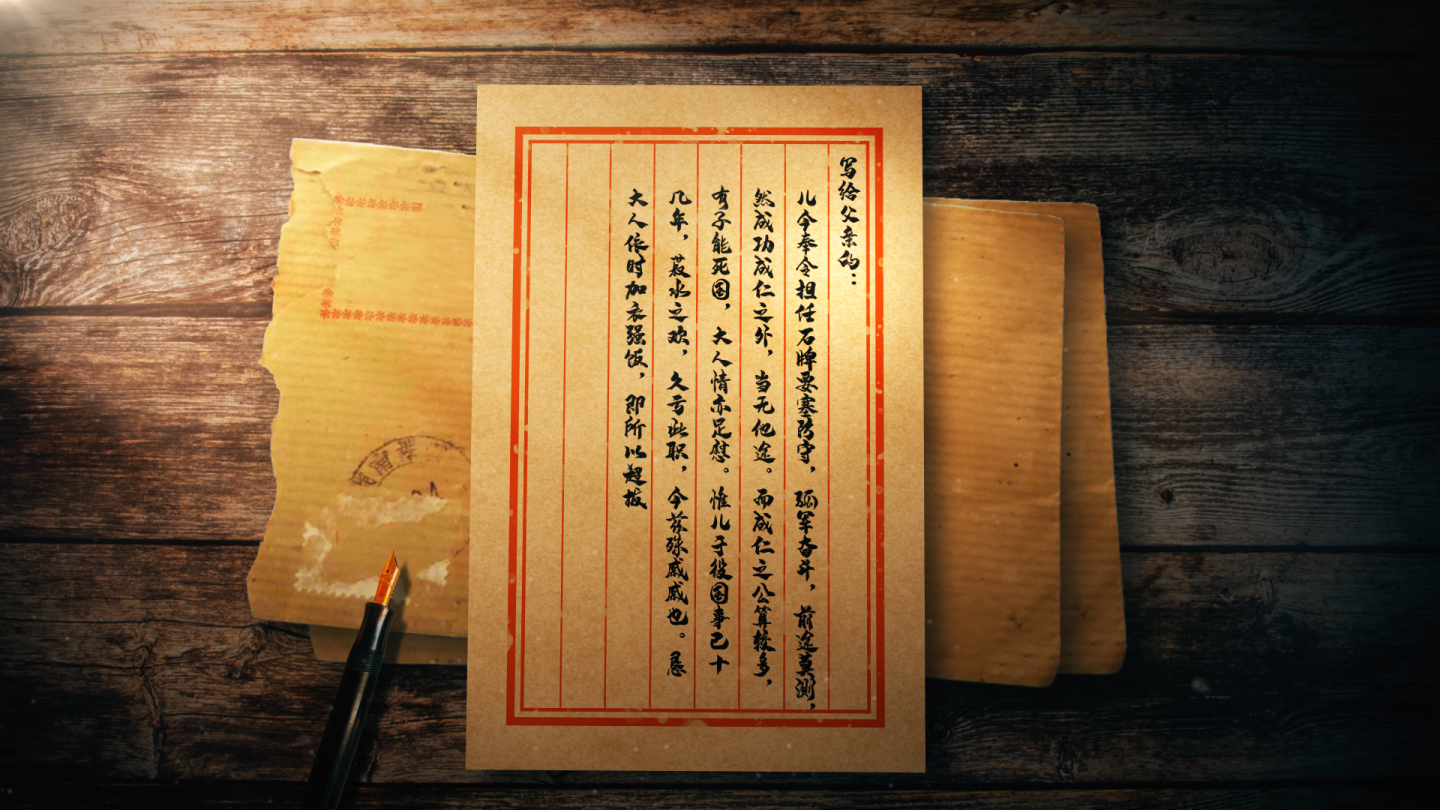 写给父亲的：
儿今奉令担任石牌要塞防守，孤军奋斗，前途莫测，
然成功成仁之外，当无他途。而成仁之公算较多，
有子能死国，大人情亦足慰。惟儿于役国事已十
几年，菽水之欢，久亏此职，今兹殊戚戚也。恳
大人依时加衣强饭，即所以超拔